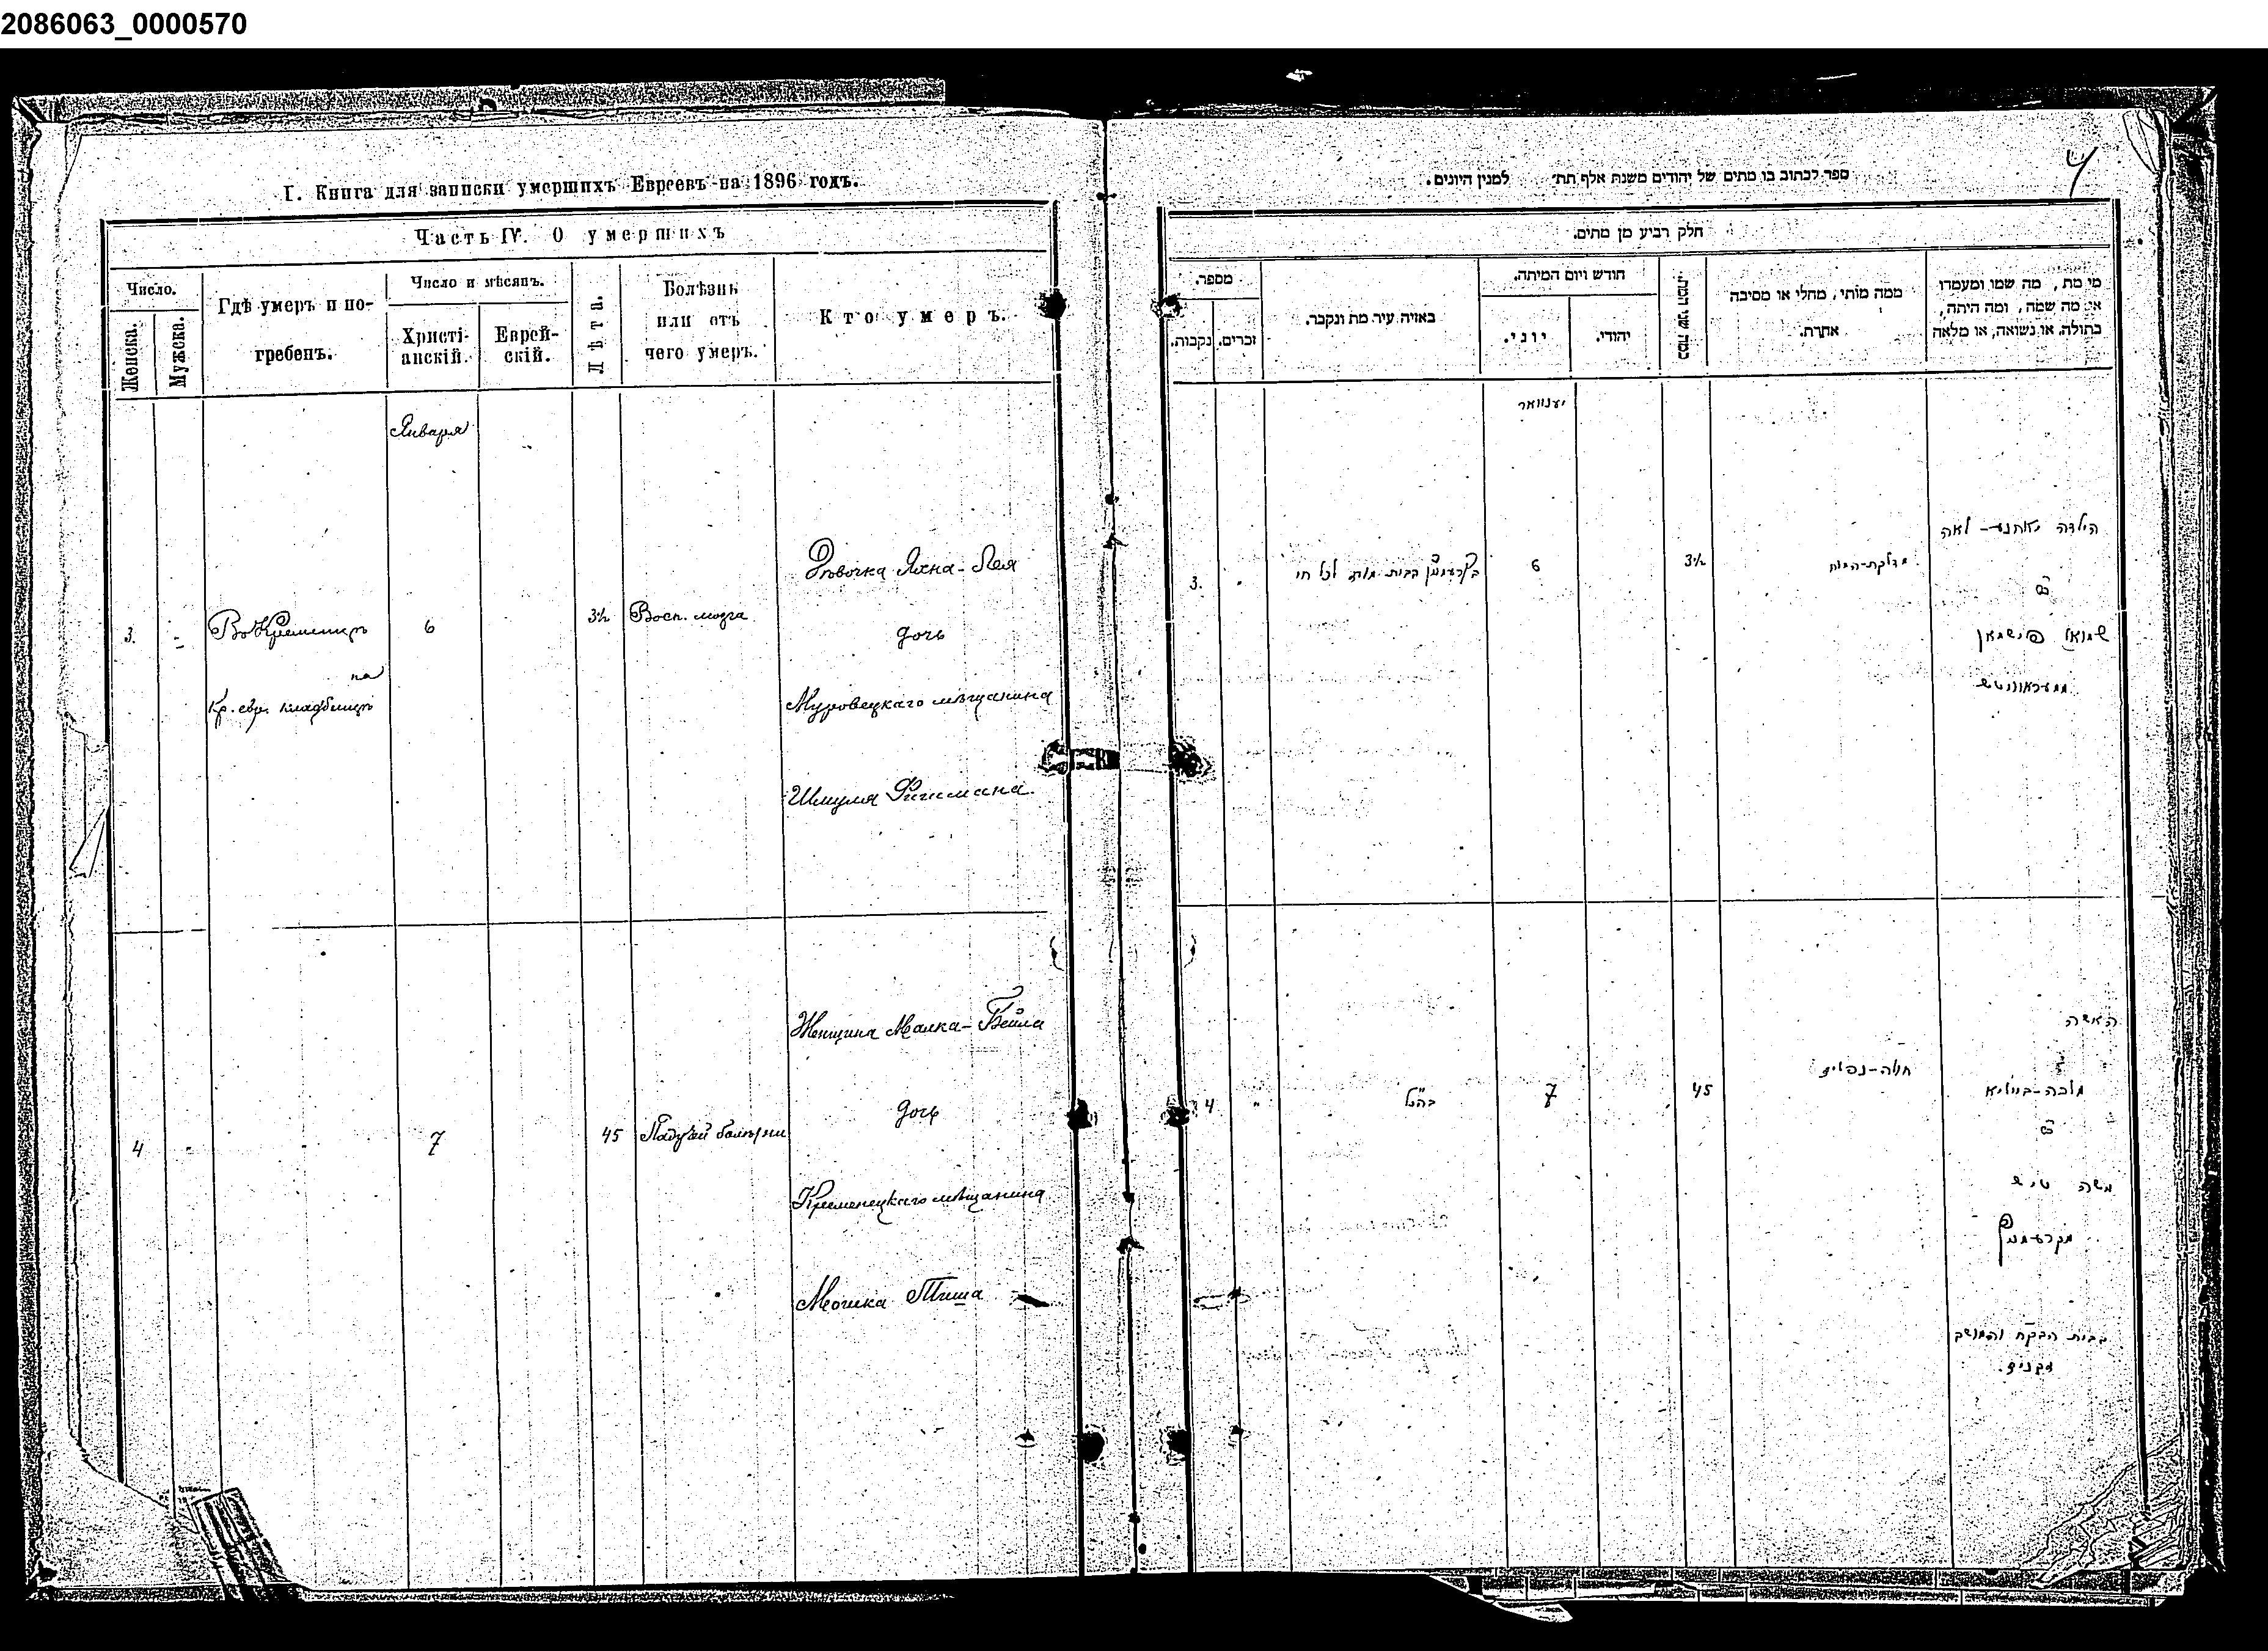 2086063_0000570
I. Книга для записки умершихъ Евреевъ на 1896 годъ.
Часть IV. О умершихъ
Число.
Женска.
Мужска.
Гдѣ умеръ и по-
гребенъ.
Число и мѣсяцъ.
Христі-
анскій.
Еврей-
скій.
Лѣта.
Болѣзнь
или отъ
чего умеръ.
Кто умеръ.
Января
3.
Въ Кременцѣ
на
Кр. евр. кладбищѣ
6
3½
Восп. мозга
Дѣвочка Яхна-Лея
дочь
Муровецкаго мѣщанина
Шмуля Фишмана.
4
7
45
Падучей болѣзни
Женщина Малка-Бейла
дочь
Кременецкаго мѣщанина
Мошка Тиша
4
ספר לכתוב בו מתים של יהודים משנת אלף תת׳ למנין היונים.
חלק רביעי מן מתים.
מספר.
נקבות.
זכרים.
באיזה עיר מת ונקבר.
חודש ויום המיתה.
יוני.
יהודי.
כמה שני המת.
ממה מותו, מחלי או מסיבה
אחרת.
מי מת, מה שמו ומעמדו
או מה שמה, ומה היתה,
בתולה, או נשואה, או מלאה
יענוואר
3.
6
3½
הילדה יאחנע-לאה
שמואל פישמאן
4
בהנ״ל
7
45
חולה-נפילה
האשה
מלכה-ביילא
משה טיש
מקרעמניץ